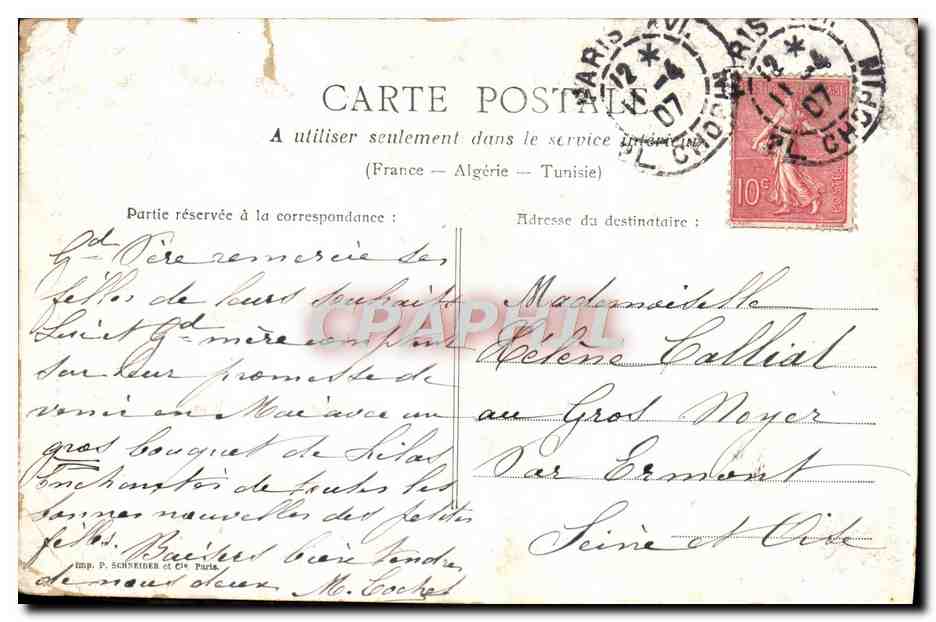 CARTE POSTALE
A utiliser seulement dans le service intérieur
(France — Algérie — Tunisie)
Partie réservée à la correspondance :
Gd Père remercie ses
filles de leurs souhaits
Lui et Gd mère comptent
sur leur promesse de
venir en Mai avec un
gros bouquet de Lilas
Enchantés de toutes les
bonnes nouvelles des petites
filles. Baisers bien tendres
de nous deux M. Cochet
Imp. P. SCHNEIDER et Cie Paris.
Adresse du destinataire :
Mademoiselle
Hélène Calliat
au Gros Noyer
Par Ermont
Seine et Oise
PARIS XVI
12
11 -4
07
PL. CHOPIN
PARIS XVI
12
11 -4
07
PL. CHOPIN
10c
POSTES
CPAPHIL